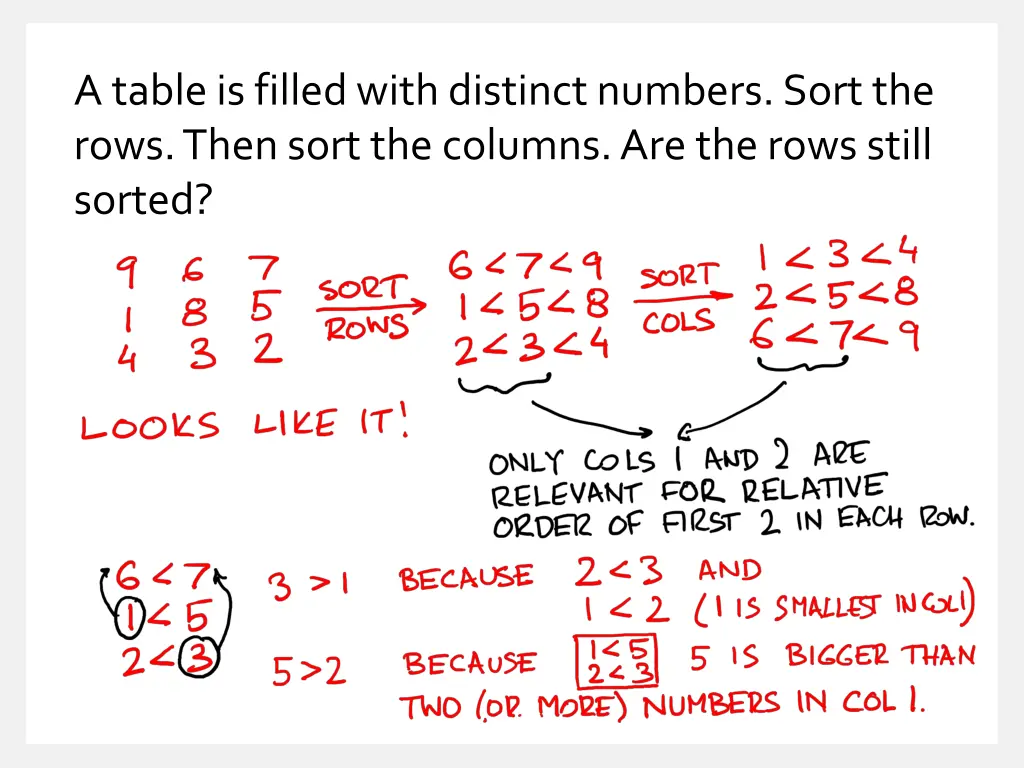 A table is filled with distinct numbers. Sort the
rows. Then sort the columns. Are the rows still
sorted?
9 6 7
1 8 5
4 3 2
SORT
ROWS
6 < 7 < 9
1 < 5 < 8
2 < 3 < 4
SORT
COLS
1 < 3 < 4
2 < 5 < 8
6 < 7 < 9
LOOKS LIKE IT!
ONLY COLS 1 AND 2 ARE
RELEVANT FOR RELATIVE
ORDER OF FIRST 2 IN EACH ROW.
6 < 7
1 < 5
2 < 3
3 > 1 BECAUSE 2 < 3 AND
1 < 2 (1 IS SMALLEST IN COL 1)
5 > 2 BECAUSE 1 < 5 5 IS BIGGER THAN
2 < 3
TWO (OR MORE) NUMBERS IN COL 1.